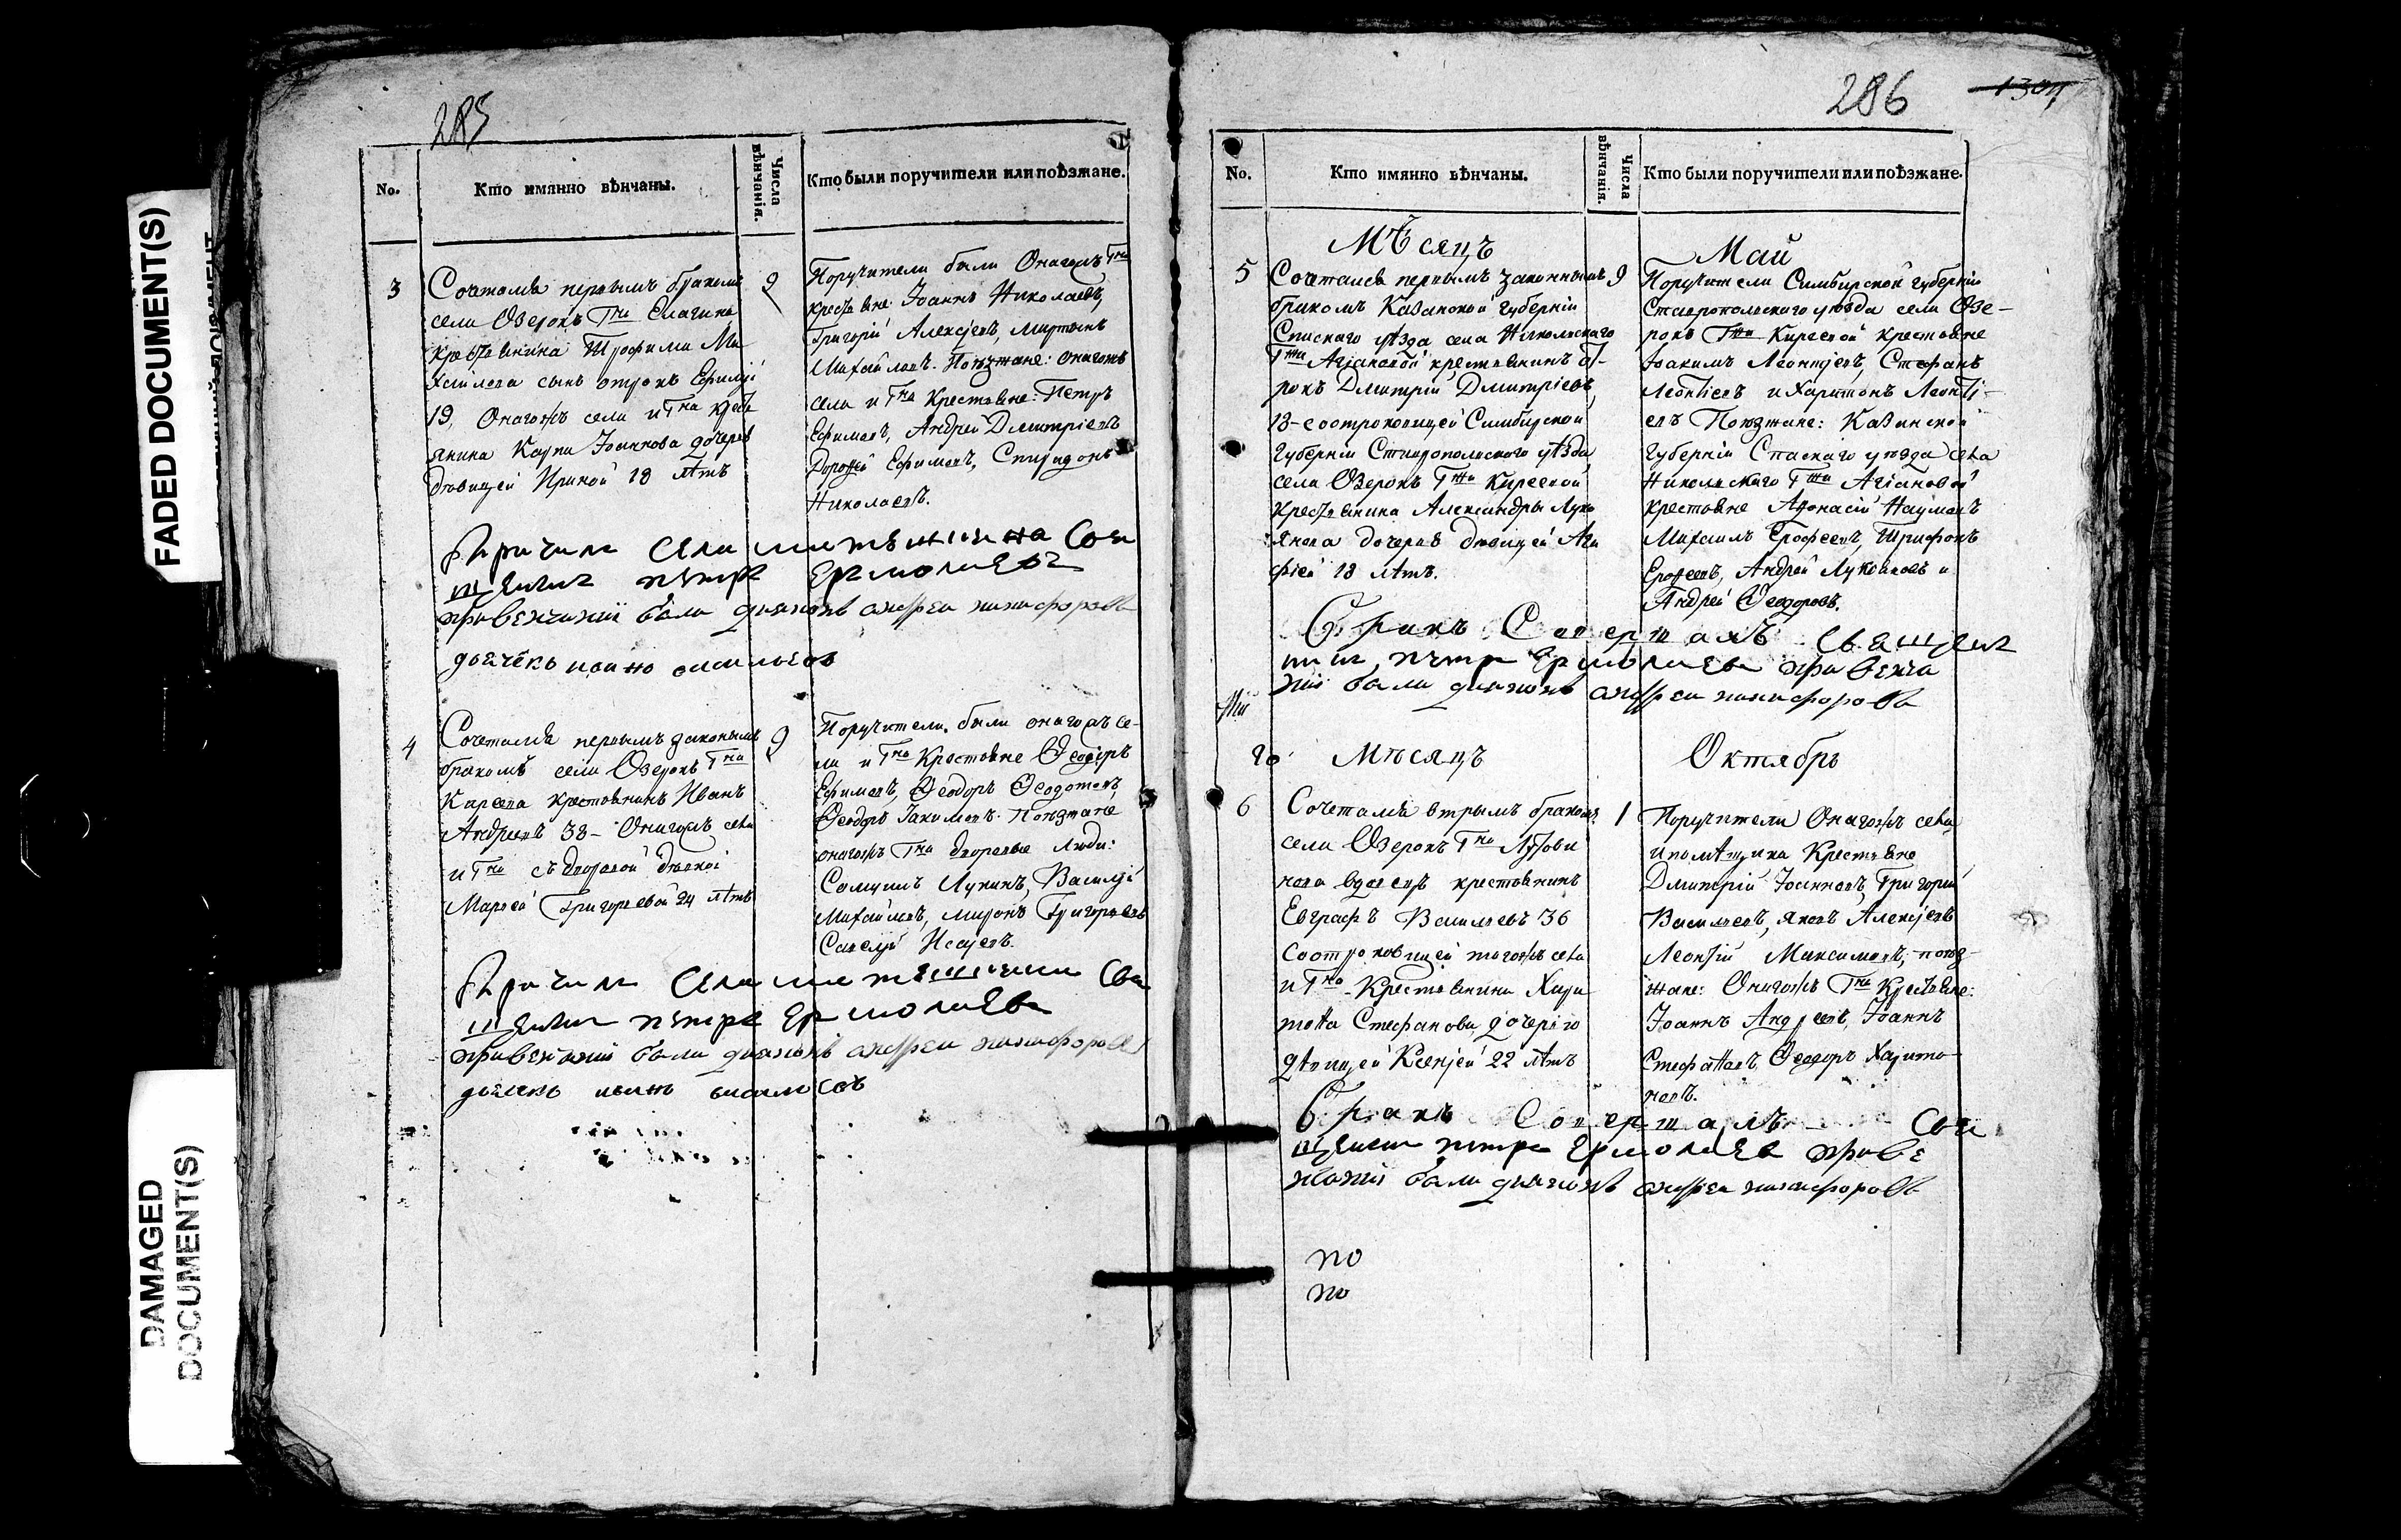 FADED DOCUMENT(S)
DAMAGED
DOCUMENT(S)
285
No.
Кто имянно вѣнчаны.
Числа
вѣнчанія.
Кто были поручители или поѣзжане.
3
Сочетался первымъ бракомъ
села Озерокъ Гна Елагина
крестьянина Трофима Ми
хаилова сынъ отрокъ Ефимъ
19, Онагожъ села и Гна кресть
янина Карпа Іоаннова дочерью
дѣвицей Ириной 18 лѣтъ
9
Поручители были Онагожъ Гна
крестьяне: Іоаннъ Николаевъ,
Григорій Алексѣевъ, Мартынъ
Михайловъ. Поѣзжане: онагожъ
села и Гна Крестьяне: Петръ
Ефимовъ, Андрей Дмитріевъ
Дорофей Ефимовъ, Спиридонъ
Николаевъ.
петръ Ермолаевъ
привенчании были диаконъ андреи никифоровъ
дьячекъ
4
Сочетался первымъ законымъ
бракомъ села Озерокъ Гна
Киреева крестьянинъ Иванъ
Андреевъ 38 - Онагожъ села
и Гна съ дворовой дѣвкой
Марѳей Григорьевой 24 лѣтъ
9
Поручители были онагожъ се-
ла и Гна Крестьяне Ѳеодоръ
Ефимовъ, Ѳеодоръ Ѳеодотовъ,
Ѳеодоръ Іакимовъ. Поѣзжане
онагожъ Гна дворовые люди:
Самуилъ Лукинъ, Василій
Михайловъ, Миронъ Григорьевъ
Савелій Исаевъ.
петръ Ермолаевъ
привенчании были диаконъ андреи никифоровъ
дьячекъ иванъ
286
1304
No.
Кто имянно вѣнчаны.
Числа
вѣнчанія.
Кто были поручители или поѣзжане.
Мѣсяцъ Май
5
Сочетался первымъ законнымъ
бракомъ Казанской губерніи
Спаскаго уѣзда села Никольскаго
крестьянинъ от-
рокъ Дмитрій Дмитріевъ,
18 - с отроковицей Симбирской
Губерніи Ставропольскаго уѣзда,
села Озерокъ Гжи Киреевой
крестьянина Александра Лукь
янова дочерью дѣвицей Ага
фіей 18 лѣтъ.
9
Поручители Симбирской губерніи
Ставропольскаго уѣзда села Озе-
рокъ Гжи Киреевой крестьяне
Іоакимъ Леонтіевъ, Стефанъ
Леонтіевъ и Харитонъ Леонті-
евъ Поѣзжане: Казанской
Губерніи Спаскаго уѣзда села
Никольскаго Гжи
крестьяне Афонасій Наумовъ
Михаилъ Ерофеевъ, Трифонъ
Ерофеевъ, Андрей Лукояновъ и
Андрей Ѳеодоровъ.
Бракъ Совершалъ Священ
никъ, петръ Ермолаевъ привенча
нии были диаконъ андреи никифоровъ
Мѣсяцъ Октябрь
6
Сочетался вторымъ бракомъ
села Озерокъ Гна
нова вдовецъ крестьянинъ
Евграфъ Васильевъ 36
с отроковицей тогожъ села
и Гна Крестьянина Хари
тона Стефанова дочерью
дѣвицей Ксеніей 22 лѣтъ
1
Поручители Онагожъ села
и помѣщика Крестьяне
Дмитрій Іоанновъ, Григорій
Васильевъ, Яковъ Алексѣевъ
Леонтій Максимовъ, поѣз-
жане: Онагожъ Гна Крестьяне:
Іоаннъ Андреевъ, Іоаннъ
Стефановъ, Ѳеодоръ Харито-
новъ.
Бракъ Совершалъ Свя
щенникъ петръ Ермолаевъ приве
нчании были диаконъ андреи никифоровъ
по
по